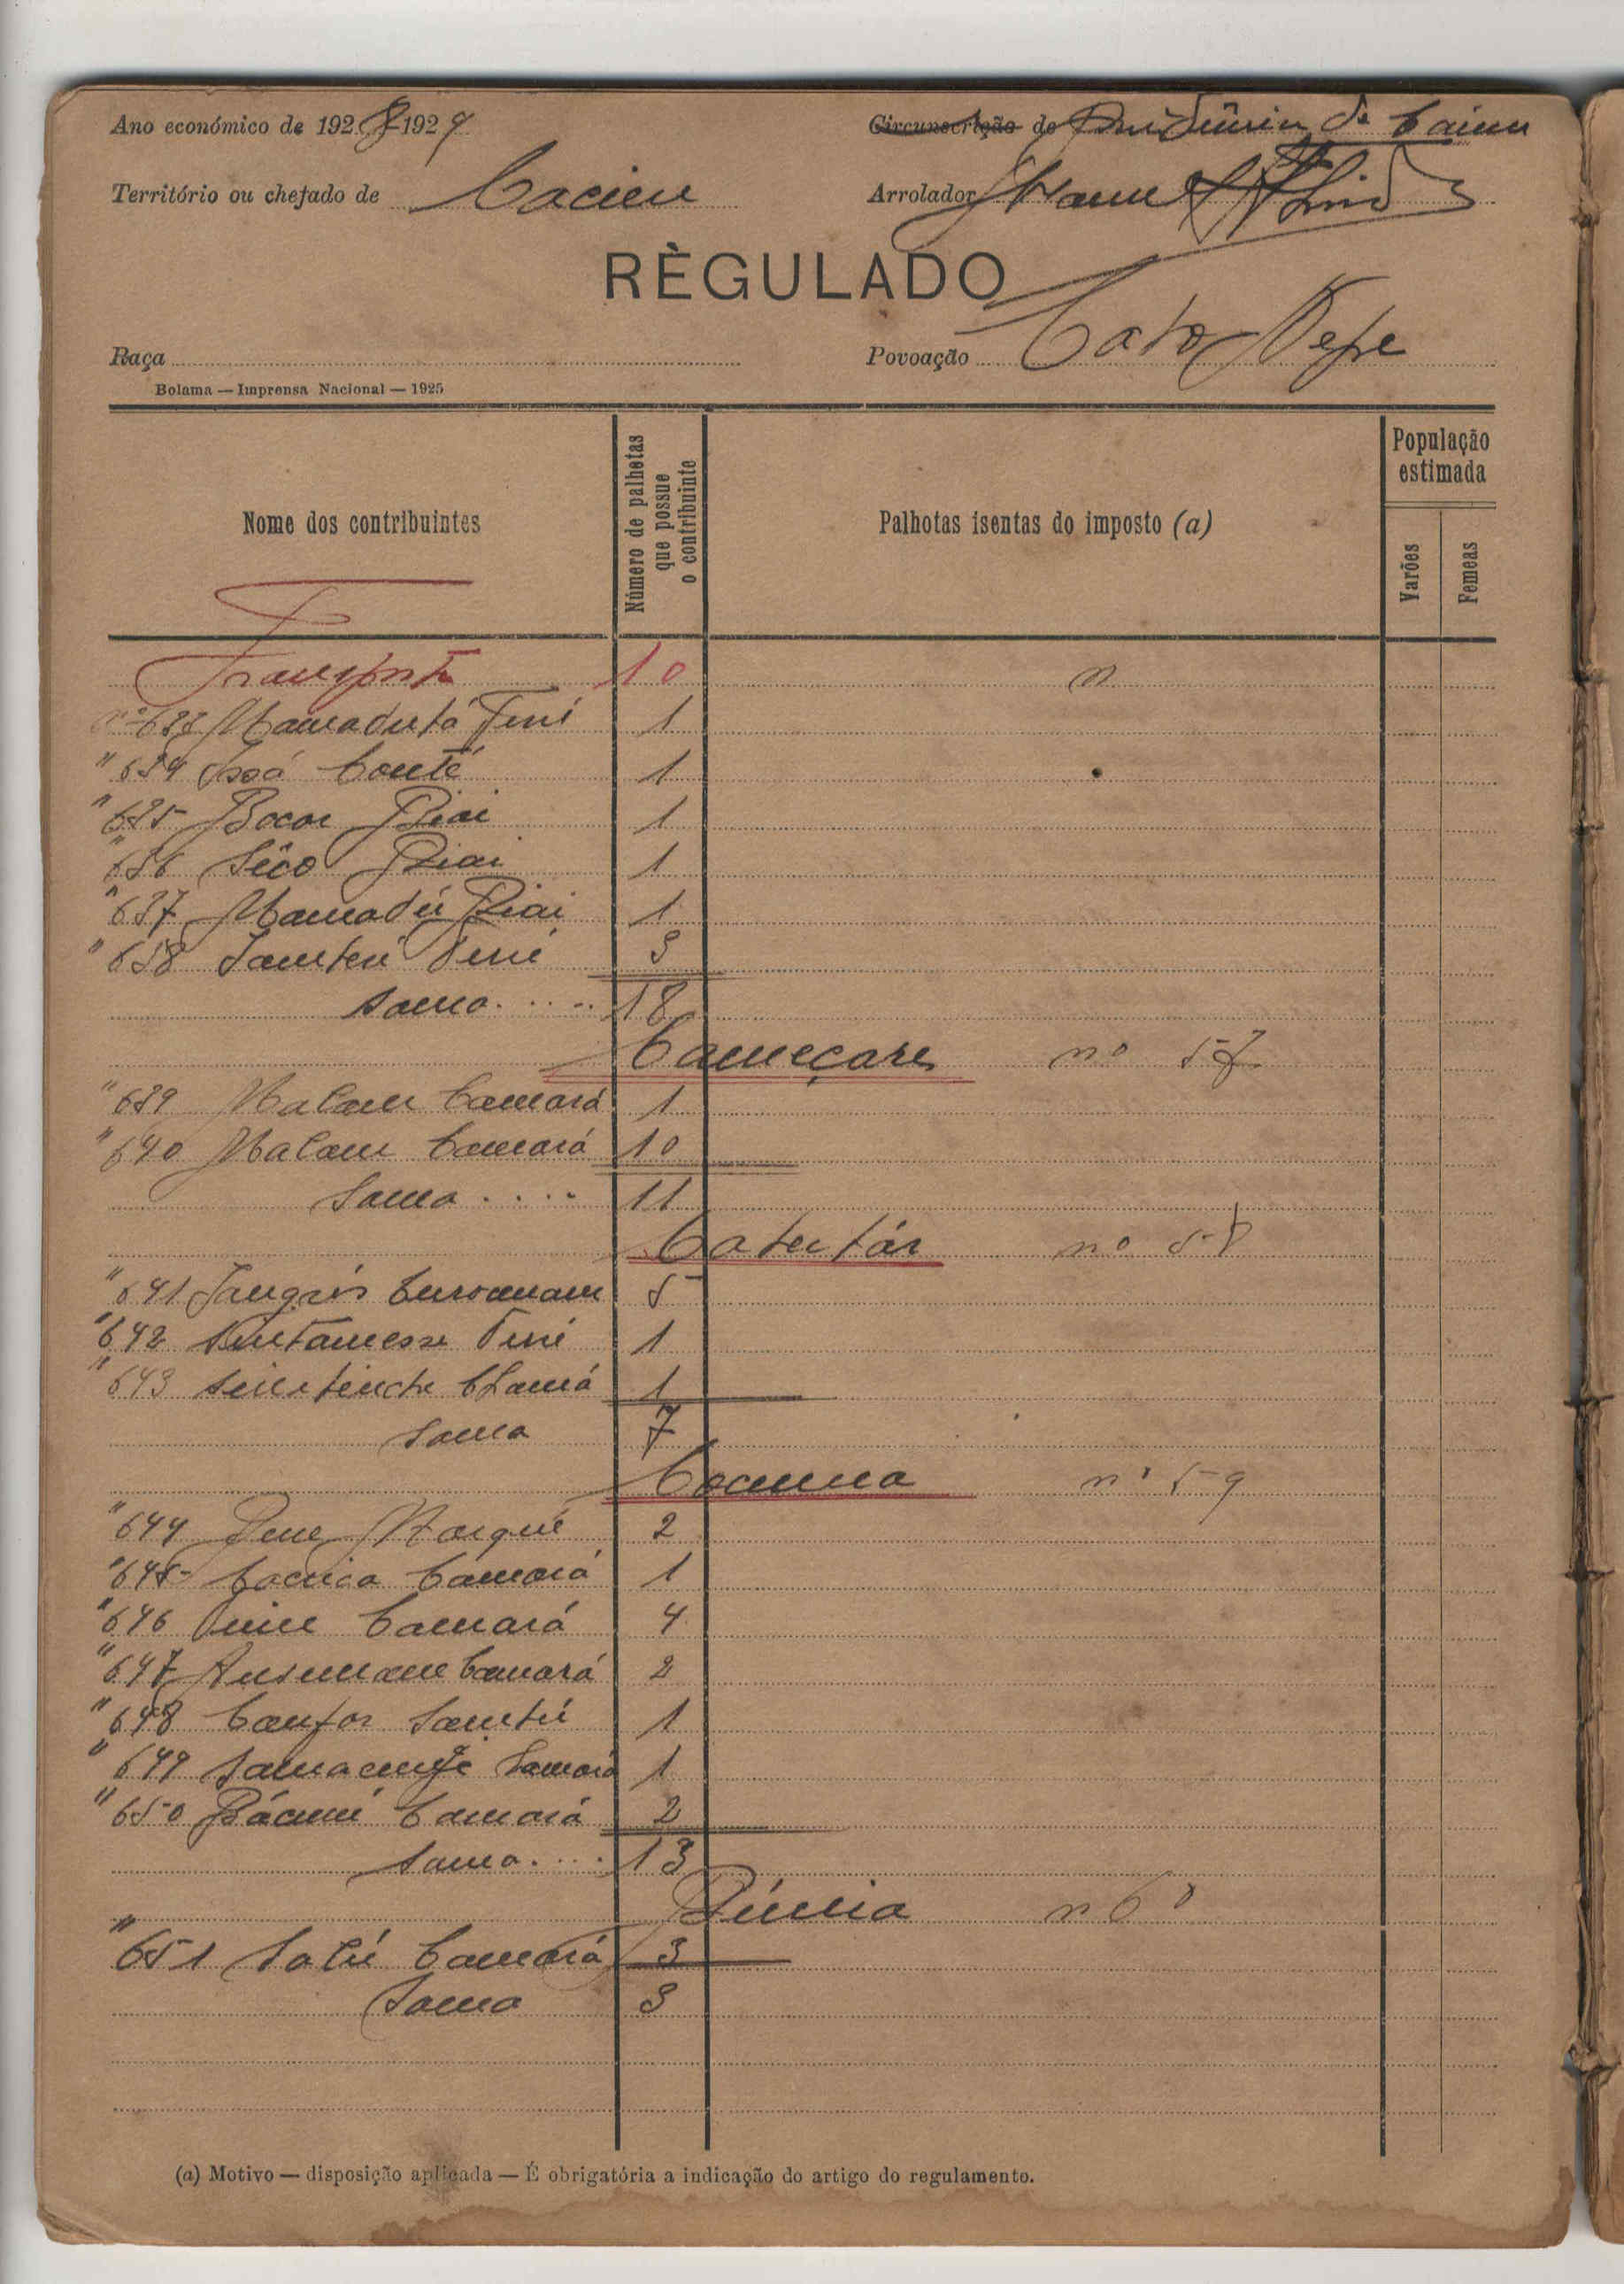 Ano económico de 1928-1929
Circunscrição de Residência de Cacine
Território ou chefado de Cacine
Arrolador Manuel
RÈGULADO
Raça
Povoação Cato Nefre
Bolama — Imprensa Nacional — 1925
Nome dos contribuintes
Número de palhetas que possue o contribuinte
Palhotas isentas do imposto (a)
População estimada
Varões
Femeas
Transporte 10 "
nº 633 Mamadu Turé 1
" 634 Issá Conté 1
" 635 Bocar Diai 1
" 636 Sêco Diai 1
" 637 Mamadú Diai 1
" 638 Sambú Turé 3
Soma 18
Cameçare nº 57
" 639 Malam Camará 1
" 640 Malam Camará 10
Soma 11
Catur tár nº 58
" 641 5
" 642 1
" 643 1
Soma 7
Coamna nº 59
" 644 2
" 645 Camará 1
" 646 Camará 4
" 647 Ansumane Camará 2
" 648 Canfor Sambú 1
" 649 Camará 1
" 650 Bácumé Camará 2
Soma 13
Búmia nº 60
" 651 Salú Camará 3
Soma 3
(a) Motivo — disposição aplicada — É obrigatória a indicação do artigo do regulamento.